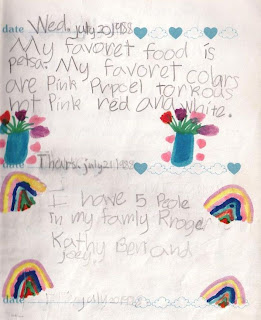 date Wed. July 20 1988
My favoret food is
petsa. My favoret colars
are Pink Prpcel tarkous
hot Pink red and white.
date Thars. July 21 1988
I have 5 People
in my famly Rroger
Kathy Ben and
joey.
date july